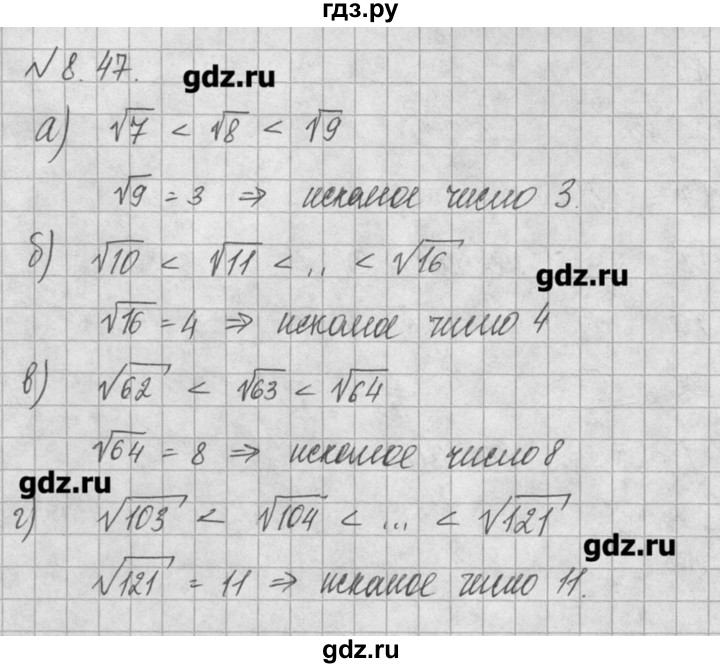 гдз.ру
№ 8. 47.
gdz.ru
а) √7 < √8 < √9
√9 = 3 ⇒ искомое число 3.
б) √10 < √11 < .. < √16
gdz.ru
√16 = 4 ⇒ искомое число 4
в) √62 < √63 < √64
√64 = 8 ⇒ искомое число 8
gdz.ru
г) √103 < √104 < ... < √121
gdz.ru
√121 = 11 ⇒ искомое число 11.
gdz.ru